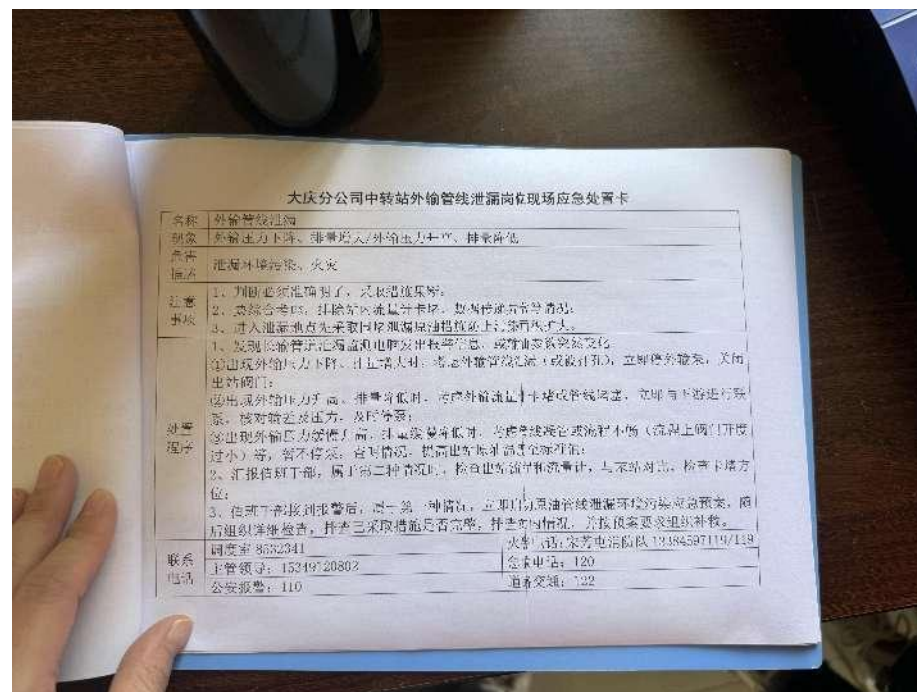 大庆分公司中转站外输管线泄漏岗位现场应急处置卡
名称 外输管线泄漏
现象 外输压力下降、排量增大/外输压力上升、排量降低
危害描述 泄漏环境污染、火灾
注意事项
1、判断必须准确明了，采取措施果断。
2、要综合考虑，排除站内流量计卡堵、数据传递异常等情况。
3、进入泄漏地点先采取围堵泄漏原油措施防止污染面积扩大。
处置程序
1、发现长输管道泄漏监测电脑发出报警信息，或输油参数突然变化
①出现外输压力下降、排量增大时，考虑外输管线泄漏（或被打孔），立即停外输泵，关闭
出站阀门；
②出现外输压力升高、排量降低时，考虑外输流量计卡堵或管线堵塞，立即与下游进行联
系，核对输差及压力，及时停泵；
③出现外输压力缓慢升高，排量缓慢降低时，考虑管线凝管或流程不畅（流程上阀门开度
过小）等，暂不停泵，查明情况，提高出站原油温度至标准值；
2、汇报值班干部，属于第二种情况时，检查出站流程和流量计，与末站对比，检查卡堵方
位；
3、值班干部接到报警后，对于第一种情况，立即启动原油管线泄漏环境污染应急预案，随
后组织详细检查，排查已采取措施是否完整，排查现场情况，并按预案要求组织补救。
联系电话
调度室 8532341
火警电话：宋芳屯消防队 13384597119/119
主管领导：15349120803
急救电话：120
公安报警：110
道路交通：122